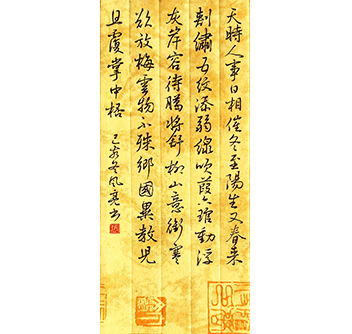 天時人事日相催冬至陽生又春来
刺繡五紋添弱線吹葭六琯動浮
灰岸容待臘將舒柳山意衝寒
欲放梅雲物不殊鄉國異教兒
且覆掌中杯
己亥冬風亮书